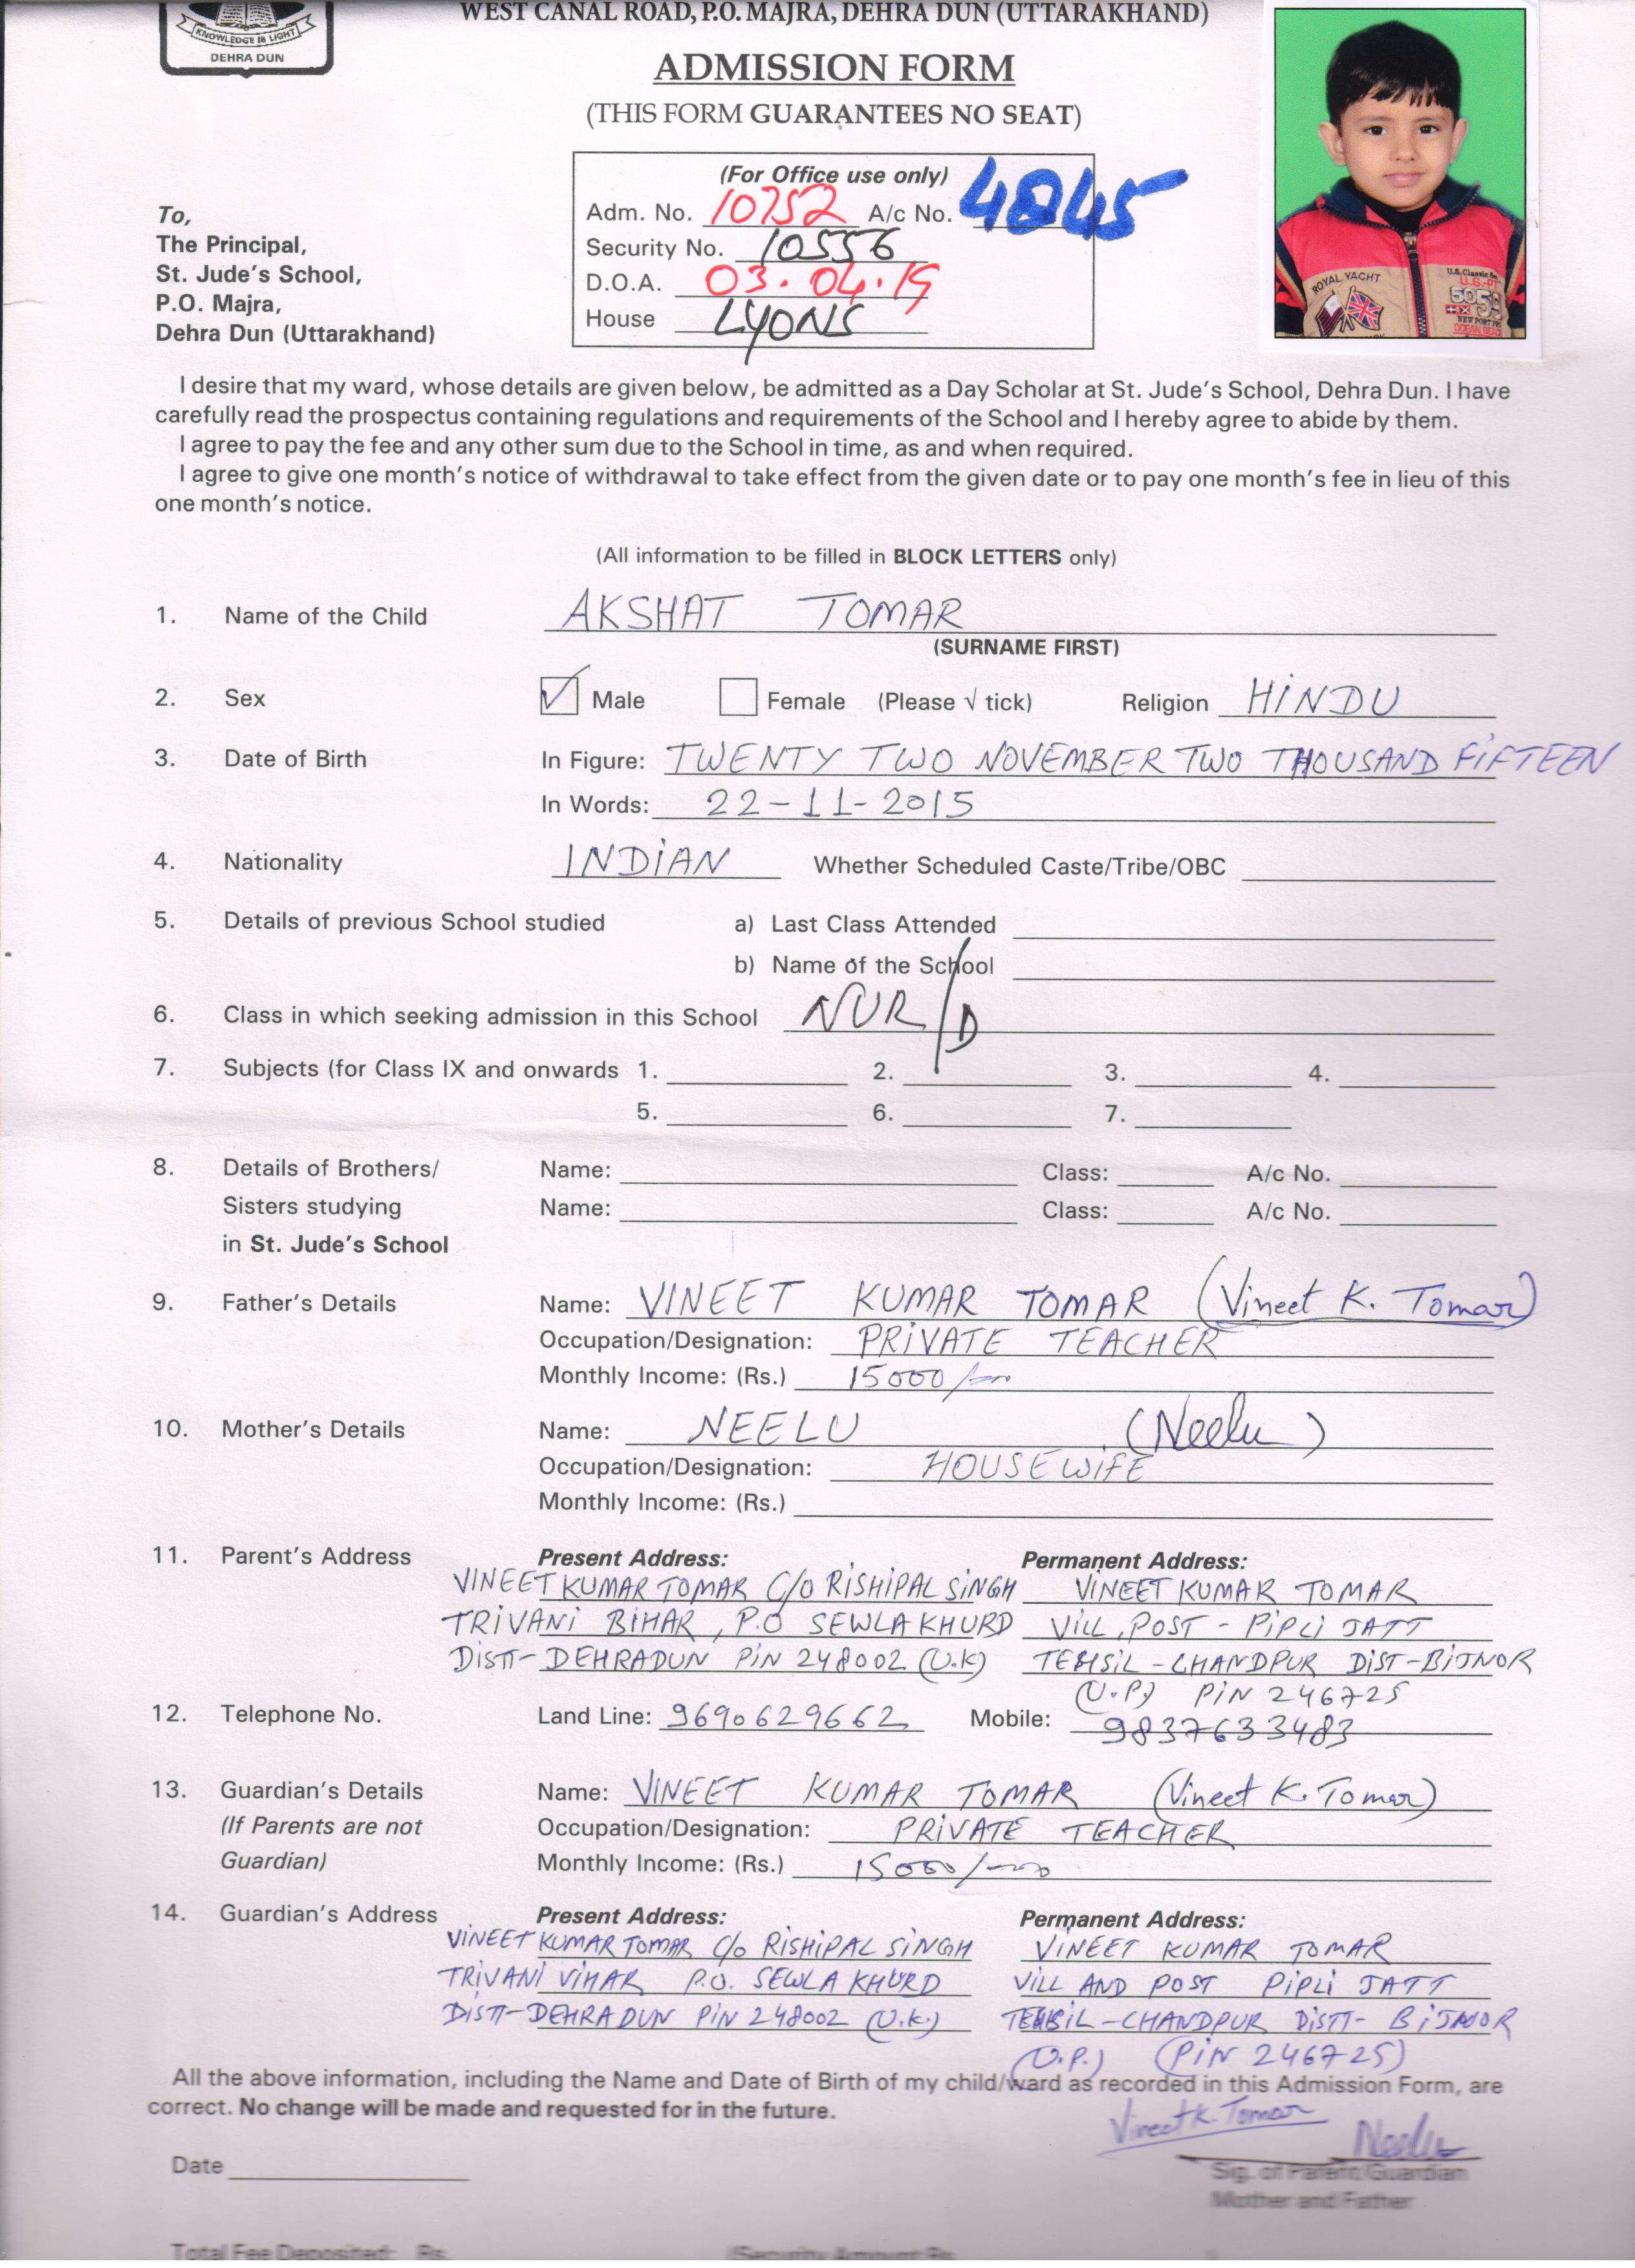 KNOWLEDGE IS LIGHT
DEHRA DUN
WEST CANAL ROAD, P.O. MAJRA, DEHRA DUN (UTTARAKHAND)
ADMISSION FORM
(THIS FORM GUARANTEES NO SEAT)
ROYAL YACHT
(For Office use only)
Adm. No. 10752 A/c No. 4845
Security No. 10556
D.O.A. 03.04.19
House LYONS
To,
The Principal,
St. Jude's School,
P.O. Majra,
Dehra Dun (Uttarakhand)
I desire that my ward, whose details are given below, be admitted as a Day Scholar at St. Jude's School, Dehra Dun. I have
carefully read the prospectus containing regulations and requirements of the School and I hereby agree to abide by them.
I agree to pay the fee and any other sum due to the School in time, as and when required.
I agree to give one month's notice of withdrawal to take effect from the given date or to pay one month's fee in lieu of this
one month's notice.
(All information to be filled in BLOCK LETTERS only)
1. Name of the Child AKSHAT TOMAR
(SURNAME FIRST)
2. Sex Male Female (Please √ tick) Religion HINDU
3. Date of Birth In Figure: TWENTY TWO NOVEMBER TWO THOUSAND FIFTEEN
In Words: 22-11-2015
4. Nationality INDIAN Whether Scheduled Caste/Tribe/OBC
5. Details of previous School studied a) Last Class Attended
b) Name of the School
6. Class in which seeking admission in this School NUR/D
7. Subjects (for Class IX and onwards 1. 2. 3. 4.
5. 6. 7.
8. Details of Brothers/ Name: Class: A/c No.
Sisters studying Name: Class: A/c No.
in St. Jude's School
9. Father's Details Name: VINEET KUMAR TOMAR (Vineet K. Tomar)
Occupation/Designation: PRIVATE TEACHER
Monthly Income: (Rs.) 15000/
10. Mother's Details Name: NEELU (Neelu)
Occupation/Designation: HOUSEWIFE
Monthly Income: (Rs.)
11. Parent's Address Present Address: Permanent Address:
VINEET KUMAR TOMAR C/O RISHIPAL SINGH VINEET KUMAR TOMAR
TRIVANI BIHAR, P.O SEWLA KHURD VILL, POST - PIPLI JATT
DISTT- DEHRADUN PIN 248002 (U.K) TEHSIL - CHANDPUR DIST-BIJNOR
(U.P.) PIN 246725
12. Telephone No. Land Line: 9690629662 Mobile: 9837633483
13. Guardian's Details Name: VINEET KUMAR TOMAR (Vineet K. Tomar)
(If Parents are not Occupation/Designation: PRIVATE TEACHER
Guardian) Monthly Income: (Rs.) 15000/
14. Guardian's Address Present Address: Permanent Address:
VINEET KUMAR TOMAR C/o RISHIPAL SINGH VINEET KUMAR TOMAR
TRIVANI VIHAR P.O. SEWLA KHURD VILL AND POST PIPLI JATT
DISTT-DEHRADUN PIN 248002 (U.K.) TEHSIL-CHANDPUR DISTT- BIJNOR
(U.P.) (PIN 246725)
All the above information, including the Name and Date of Birth of my child/ward as recorded in this Admission Form, are
correct. No change will be made and requested for in the future.
Vineet K. Tomar Neelu
Date Sig. of Parent/Guardian
Mother and Father
Total Fee Deposited: Rs. (Security Amount Rs.